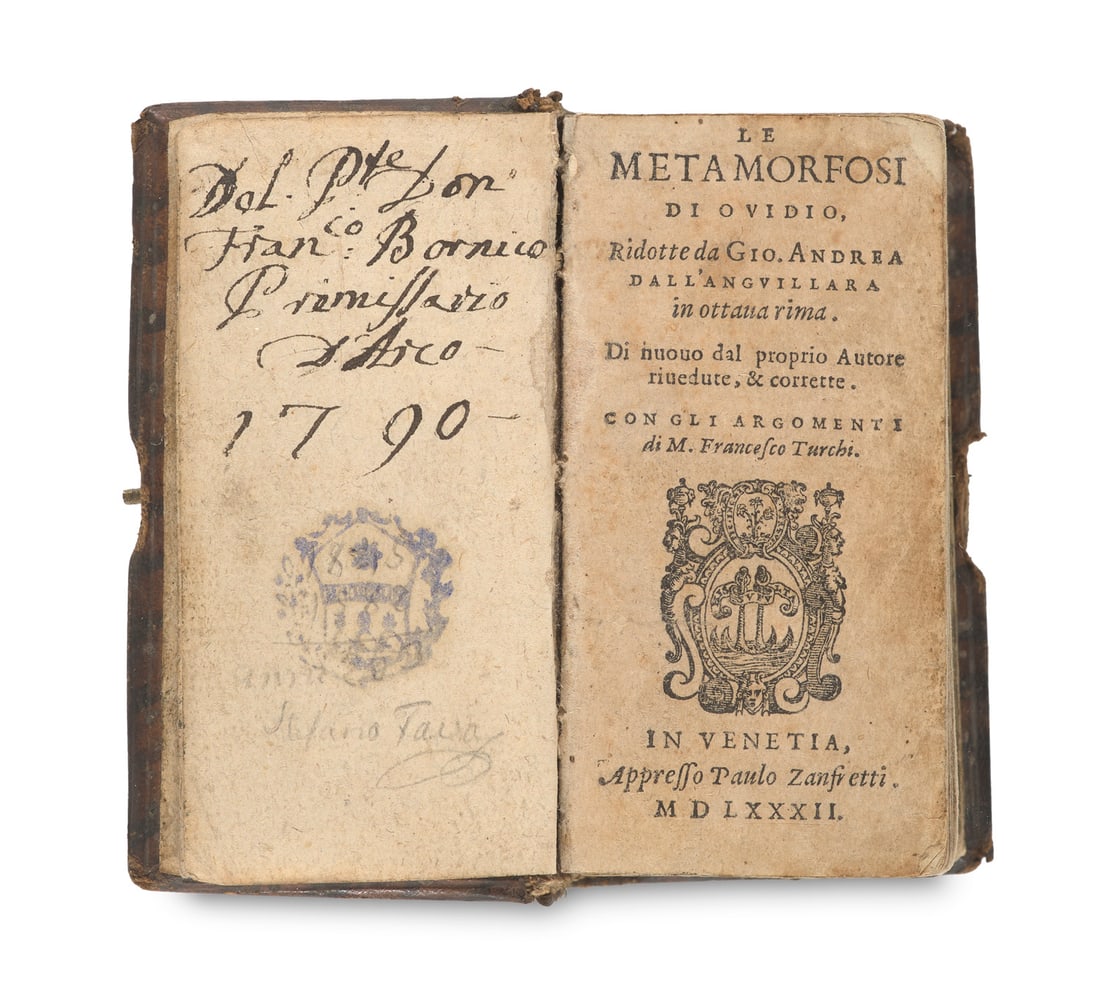 Del. Pte Don
Franco: Bornico
Primissario
d'Arco -
1790 -
Stefano
LE
METAMORFOSI
DI OVIDIO,
Ridotte da GIO. ANDREA
DALL'ANGVILLARA
in ottaua rima.
Di nuouo dal proprio Autore
riuedute, & corrette.
CON GLI ARGOMENTI
di M. Francesco Turchi.
IN VENETIA,
Appresso Paulo Zanfretti.
M D LXXXII.